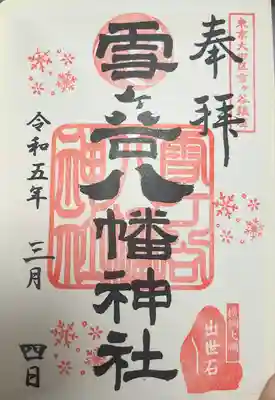 東京大田区雪ヶ谷鎮守
奉拝
雪ヶ谷八幡神社
雪ヶ谷
神社
令和五年 三月 四日
出世石